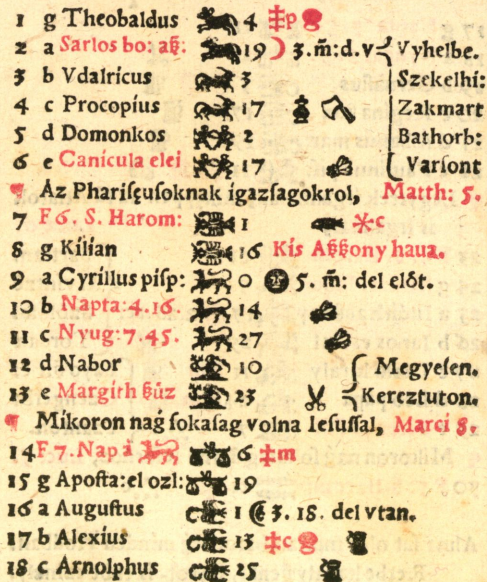 1 g Theobaldus 4 ‡p
2 a Sarlos bo: aß: 19 ☽ 3. m̃: d. v Vyhelbe.
3 b Vdalricus 3 Szekelhi:
4 c Procopius 17 Zakmart
5 d Domonkos 2 Bathorb:
6 e Canicula elei 17 Varſont
¶ Áz Phariſęuſoknak igazſagokrol, Matth: 5.
7 F6. S. Harom: 1 ⚹c
8 g Kilian 16 Kis Aßßony haua.
9 a Cyrillus piſp: 0 5. m̃: del előt.
10 b Napta: 4. 16. 14
11 c Nyug: 7. 45. 27
12 d Nabor 10 Megyeſen.
13 e Margith ßűz 23 Kereztuton.
¶ Mikoron nag̀ ſokaſag volna Ieſuſſal, Marci 8.
14 F 7. Nap á 6 ‡m
15 g Apoſta: el ozl: 19
16 a Auguſtus 1 ☾ 3. 18. del vtan.
17 b Alexius 13 ‡c
18 c Arnolphus 25